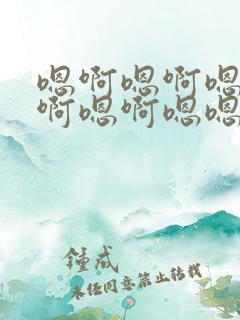 嗯啊嗯啊嗯
啊嗯啊嗯嗯
鍾成
未经同意禁止转载